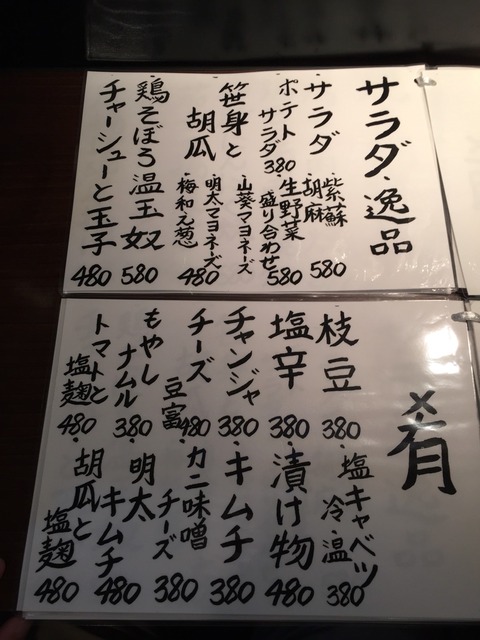 サラダ・逸品
サラダ 紫蘇 胡麻 580
ポテトサラダ 380
生野菜盛り合わせ 580
笹身と胡瓜 山葵マヨネーズ 明太マヨネーズ 梅和え葱 480
鶏そぼろ温玉奴 580
チャーシューと玉子 480
肴
枝豆 380
塩辛 380
チャンジャ 380
チーズ豆富 480
もやしナムル 380
トマトと塩麹 480
塩キャベツ 冷・温 380
漬け物 480
キムチ 380
カニ味噌チーズ 380
明太キムチ 480
胡瓜と塩麹 480